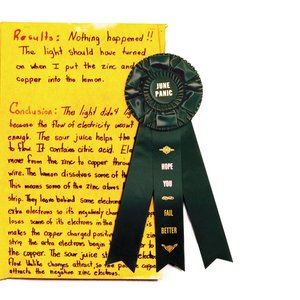 Results: Nothing happened!!
The light should have turned
on when I put the zinc and
copper into the lemon.
Conclusion: The light didn't
because the flow of electricity wasn't
enough. The sour juice helps the
to flow. It contains citric acid.
moves from the zinc to copper through
wire. The lemon dissolves some of
This means some of the zinc atoms
strip. They leave behind some electrons
extra electrons so its negatively
loses some of its electrons in the
makes the copper charged positive
strip the extra electrons begin
the copper. The sour juice
flow. Unlike charges attract so the
attracts the negative zinc electrons.
JUNE
PANIC
HOPE
YOU
FAIL
BETTER